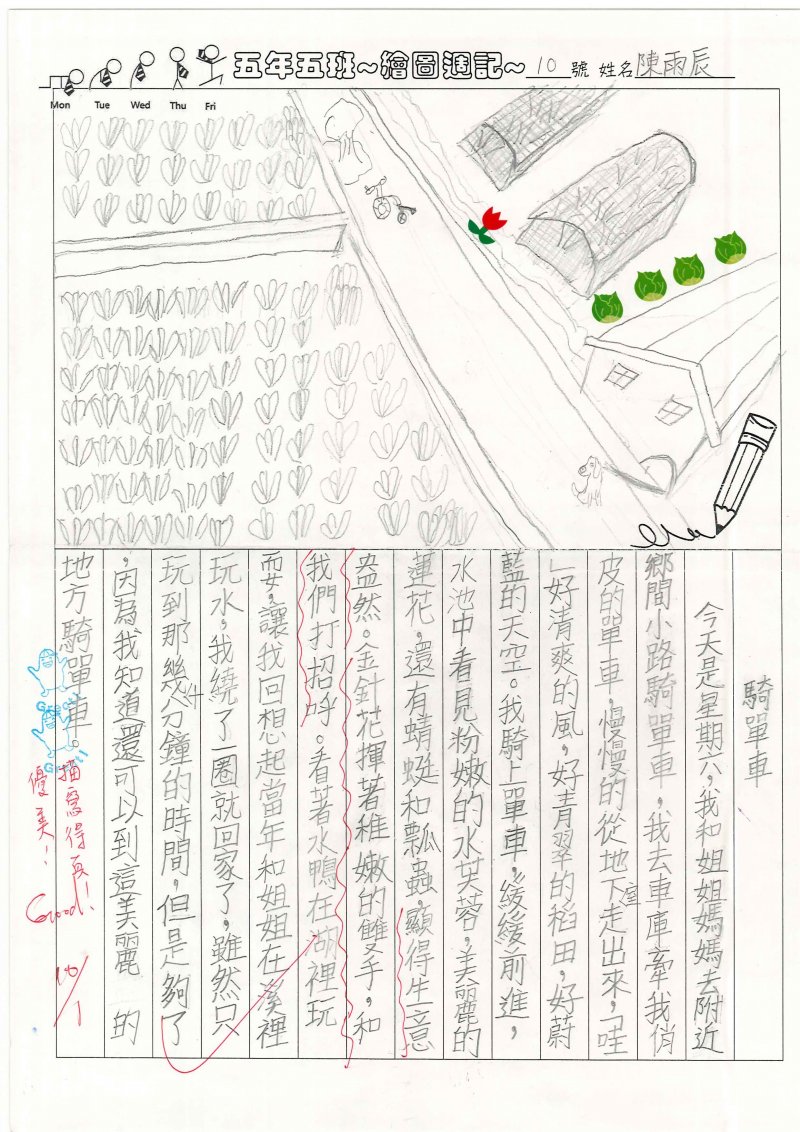 五年五班~繪圖週記~ 10 號 姓名 陳雨辰
Mon Tue Wed Thu Fri
騎單車
今天是星期六，我和姐姐媽媽去附近
鄉間小路騎單車，我去車庫牽我俏
皮的單車，慢慢的從地下室走出來，「哇
」好清爽的風，好青翠的稻田，好蔚
藍的天空。我騎上單車，緩緩前進，
水池中看見粉嫩的水芙蓉，美麗的
蓮花，還有蜻蜓和瓢蟲，顯得生意
盎然。金針花揮著稚嫩的雙手，和
我們打招呼。看著水鴨在湖裡玩
耍，讓我回想起當年和姐姐在溪裡
玩水，我繞了一圈就回家了，雖然只
玩到那幾十分鐘的時間，但是夠了
，因為我知道還可以到這美麗 的
地方騎單車。
描寫得真
優美！
Good!
10/1